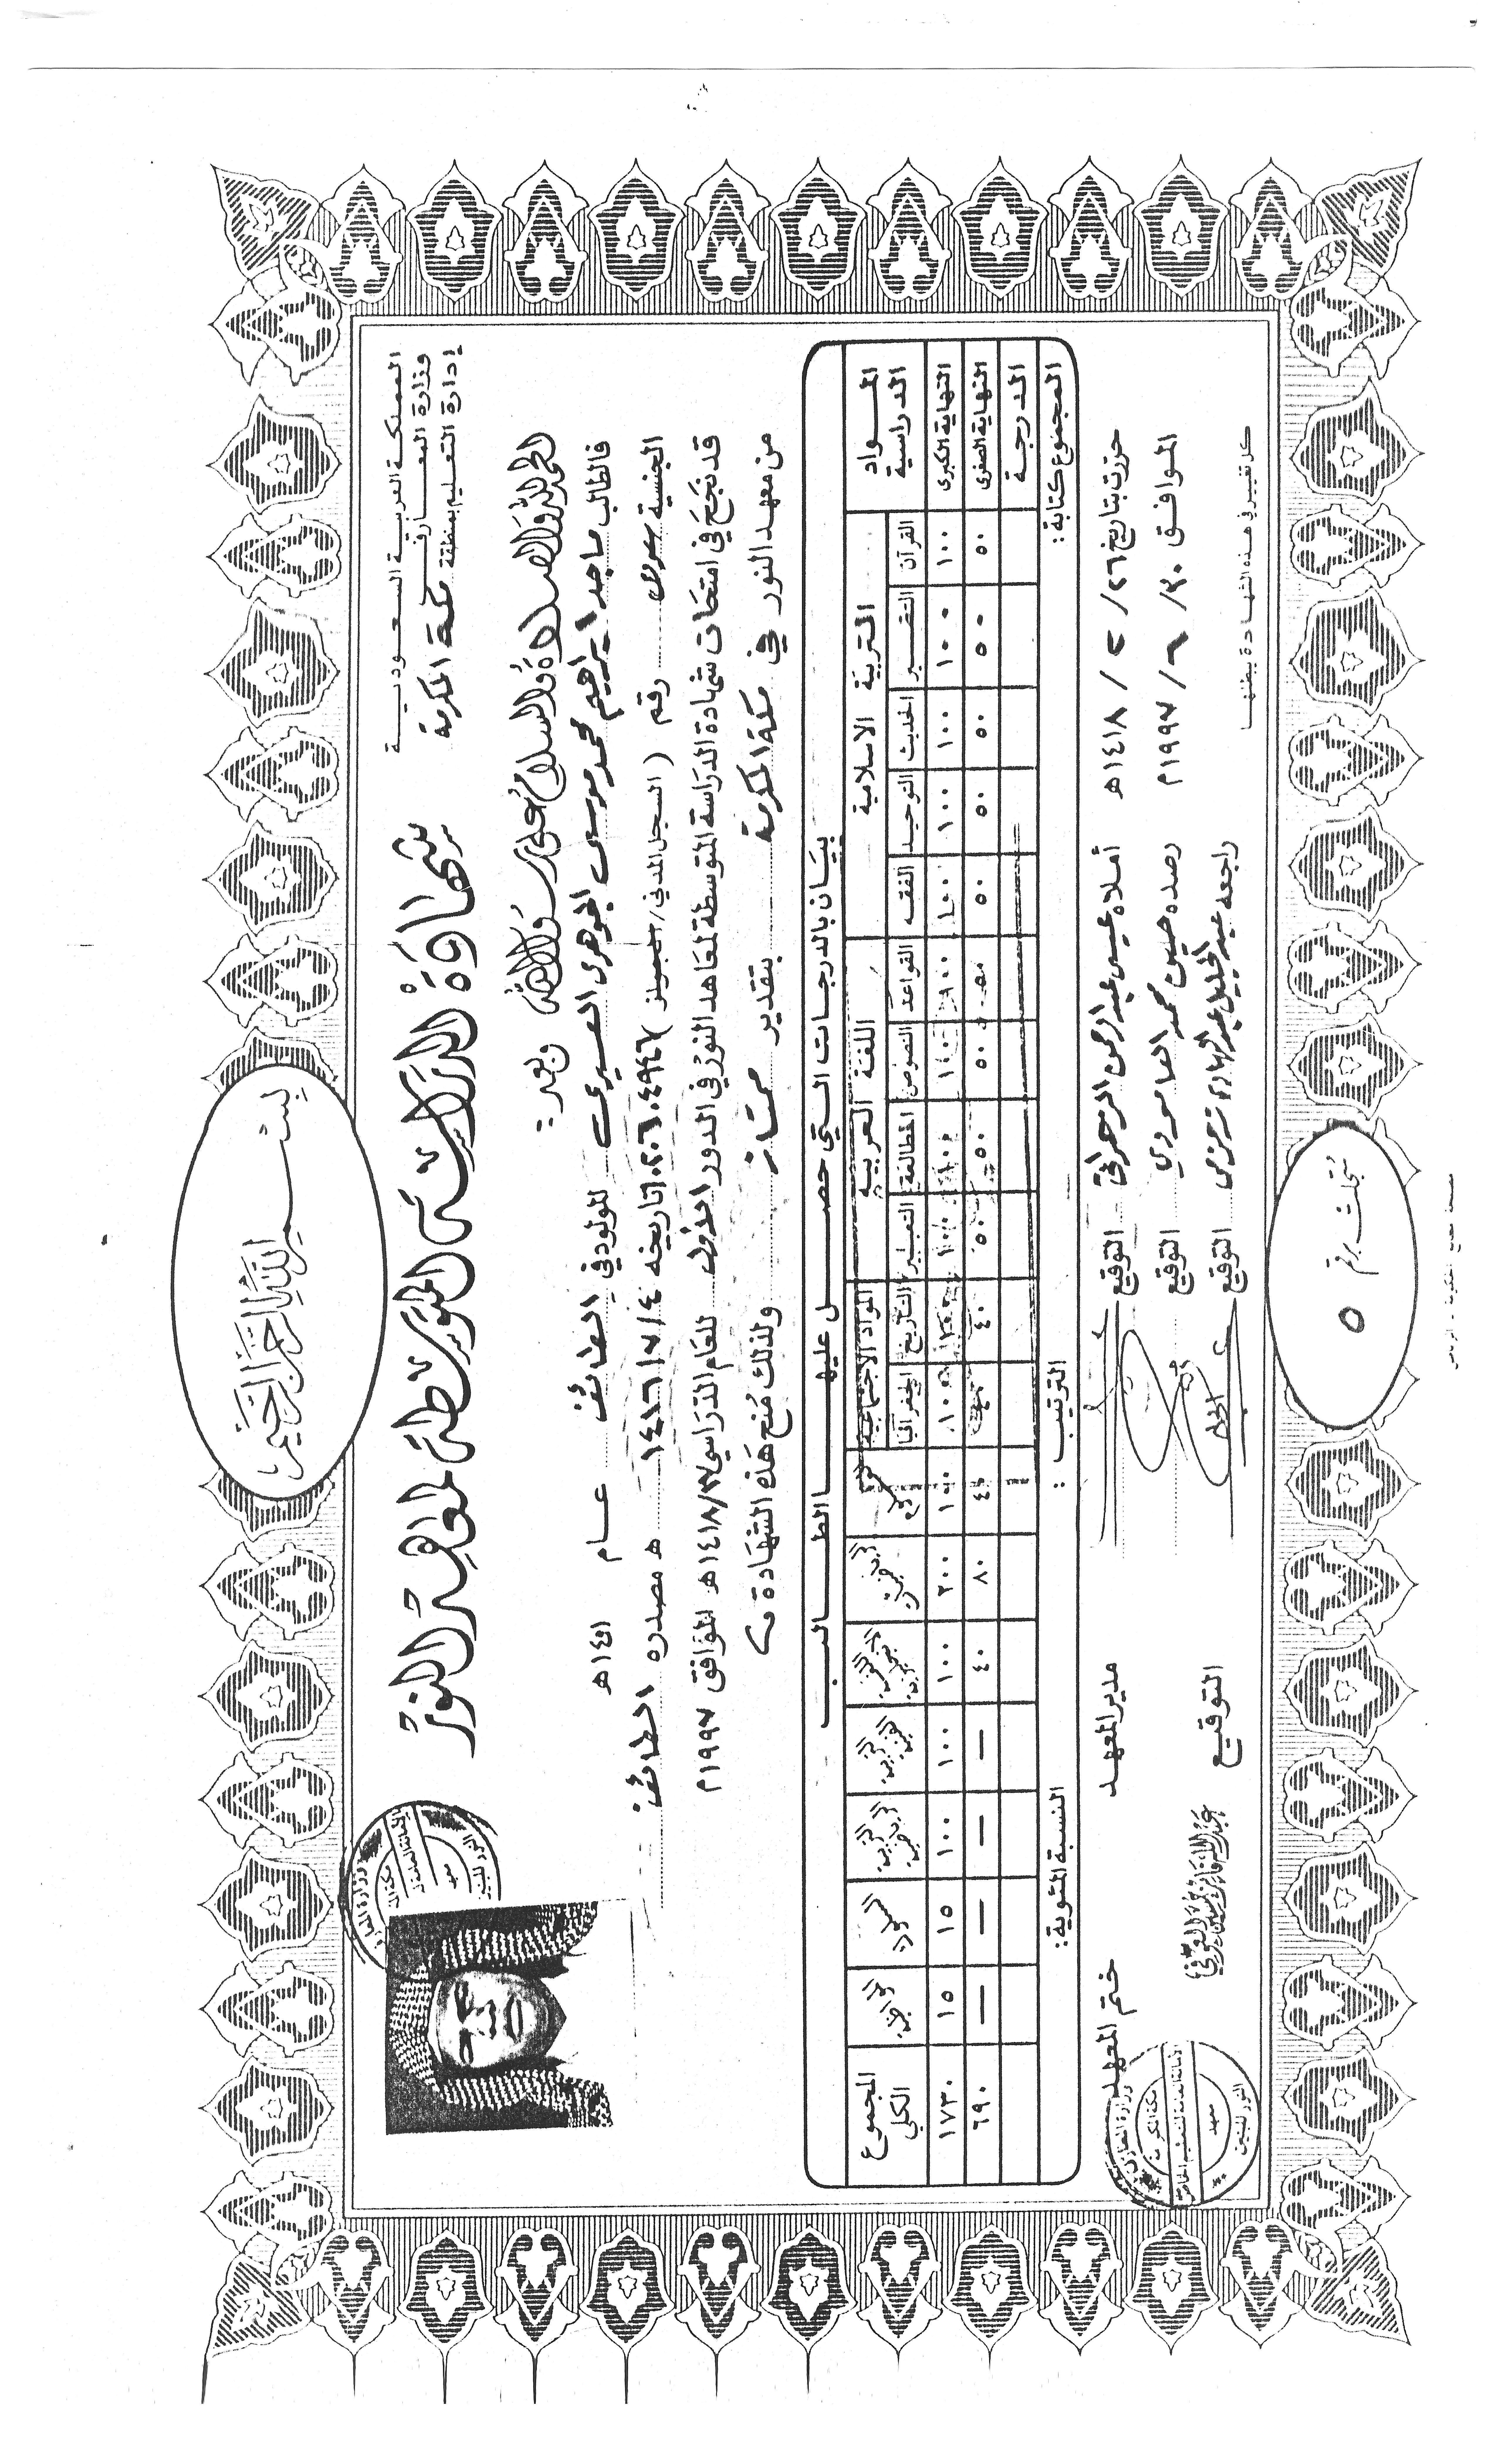 بسم الله الرحمن الرحيم
المملكة العربية السعودية
وزارة المعارف
إدارة التعليم بمنطقة مكة المكرمة
شهادة الدراسة المتوسطة لمعاهد النور
الحمد لله والصلاة والسلام على رسول الله وبعد :
فالطالب ماجد ابراهيم محمد موسى الجوهري العسيري المولود في الطائف عام ١٤٠١هـ
الجنسية سعودي رقم ( السجل المدني / تاريخه ١٤١٦/٧/٤ هـ مصدره الطائف
قد نجح في امتحان شهادة الدراسة المتوسطة لمعاهد النور في الدور الأول للعام الدراسي ١٤١٨/١٧هـ الموافق ١٩٩٧م
من معهد النور في مكة المكرمة بتقدير ممتاز ولذلك مُنح هذه الشهادة
بيان بالدرجات التي حصل عليها الطالب
المواد الدراسية التربية الاسلامية اللغة العربية المواد الاجتماعية المجموع الكلي
القرآن التفسير الحديث التوحيد الفقه القواعد النصوص المطالعة التعبير التاريخ الجغرافيا علوم رياضيات اللغة الإنجليزية التربية الفنية التربية الرياضية السلوك المواظبة
النهاية الكبرى ١٠٠ ١٠٠ ١٠٠ ١٠٠ ١٠٠ ١٠٠ ١٠٠ ١٠٠ ١٠٠ ١٠٠ ١٠٠ ١٠٠ ٢٠٠ ١٠٠ ١٠٠ ١٠٠ ١٥ ١٥ ١٧٣٠
النهاية الصغرى ٥٠ ٥٠ ٥٠ ٥٠ ٥٠ ٥٠ ٥٠ ٥٠ ٥٠ ٤٠ ٤٠ ٤٠ ٨٠ ٤٠ — — — — ٦٩٠
الدرجة
المجموع كتابة : الترتيب : النسبة المئوية :
حررت بتاريخ ٢٦ / ٢ / ١٤١٨هـ أملاه عيسى عبد الرحمن الزهراني التوقيع مدير المعهد ختم المعهد
الموافق ٣٠ / ٦ / ١٩٩٧م رصده حسين محمد العامودي التوقيع
راجعه عبد الجليل عبد الهادي التوقيع التوقيع
كل تغيير في هذه الشهادة يبطلها
سُجلت برقم
٥